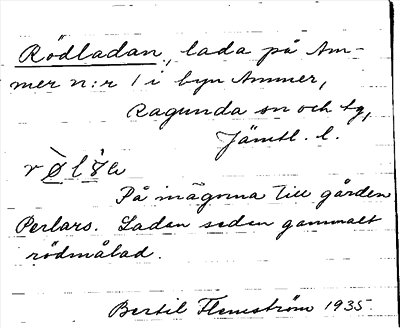 Rödladan, lada på Am-
mer n:r 1 i byn Ammer,
Ragunda sn och tg,
Jämtl. l.
På mägorna till gården
Perlars. Ladan sedan gammalt
rödmålad.
Bertil Flemström 1935.